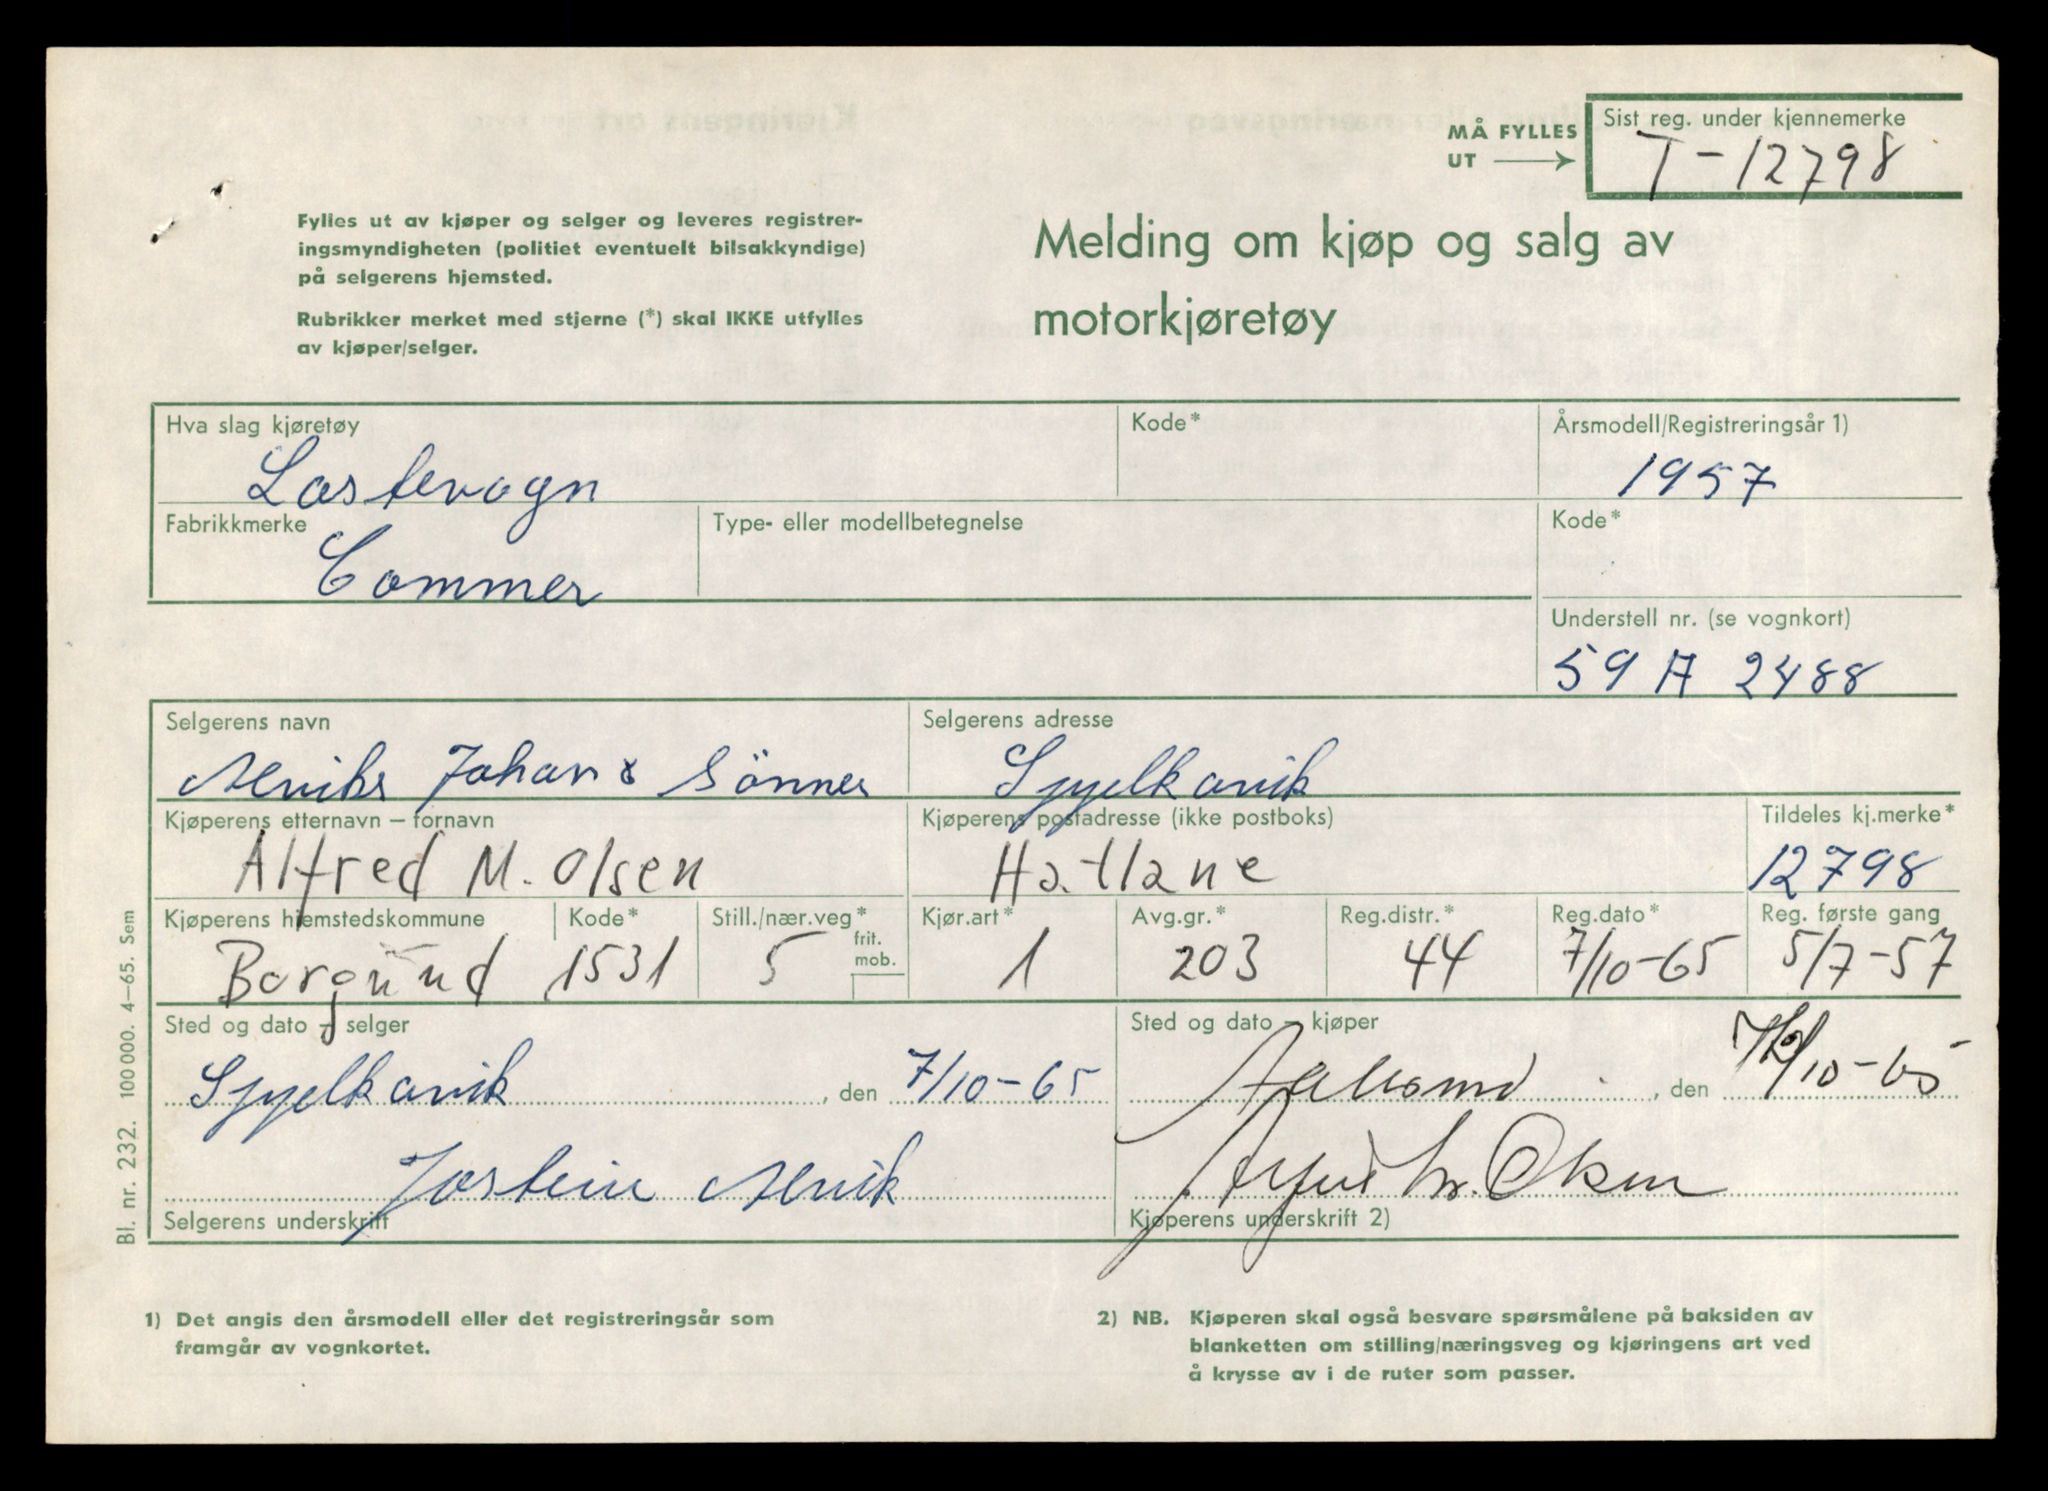 MÅ FYLLES
UT
Sist reg. under kjennemerke
T-12798
Fylles ut av kjøper og selger og leveres registrer-
ingsmyndigheten (politiet eventuelt bilsakkyndige)
på selgerens hjemsted.
Rubrikker merket med stjerne (*) skal IKKE utfylles
av kjøper/selger.
Melding om kjøp og salg av
motorkjøretøy
Hva slag kjøretøy
Lastevogn
Kode*
Årsmodell/Registreringsår 1)
1957
Fabrikkmerke
Commer
Type- eller modellbetegnelse
Kode*
Understell nr. (se vognkort)
59 A 2488
Selgerens navn
Johan & Sönner
Selgerens adresse
Spjelkavik
Kjøperens etternavn – fornavn
Alfred M. Olsen
Kjøperens postadresse (ikke postboks)
Hatlane
Tildeles kj.merke*
12798
Kjøperens hjemstedskommune
Borgund
Kode*
1531
Still./nær.veg*
5
frit.
mob.
Kjør.art*
1
Avg.gr.*
203
Reg.distr.*
44
Reg.dato*
7/10-65
Reg. første gang
5/7-57
Sted og dato – selger
Spjelkavik, den 7/10-65
Sted og dato – kjøper
Aalesund, den 7/10-65
Jostein
Selgerens underskrift
Alfred M. Olsen
Kjøperens underskrift 2)
Bl. nr. 232. 100 000. 4–65. Sem
1) Det angis den årsmodell eller det registreringsår som
framgår av vognkortet.
2) NB. Kjøperen skal også besvare spørsmålene på baksiden av
blanketten om stilling/næringsveg og kjøringens art ved
å krysse av i de ruter som passer.